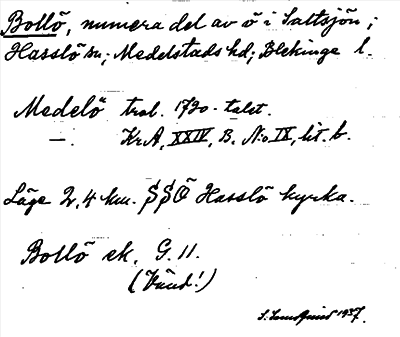 Bollö, numera del av ö i Saltsjön;
Hasslö sn; Medelstads hd; Blekinge l.
Medelö trol. 1720-talet.
—. Kr.A, XXIV, B. No IX, lit. b.
Läge 2,4 km. SSÖ Hasslö kyrka.
Bollö ek. G. 11.
(Vänd!)
S. 1937.